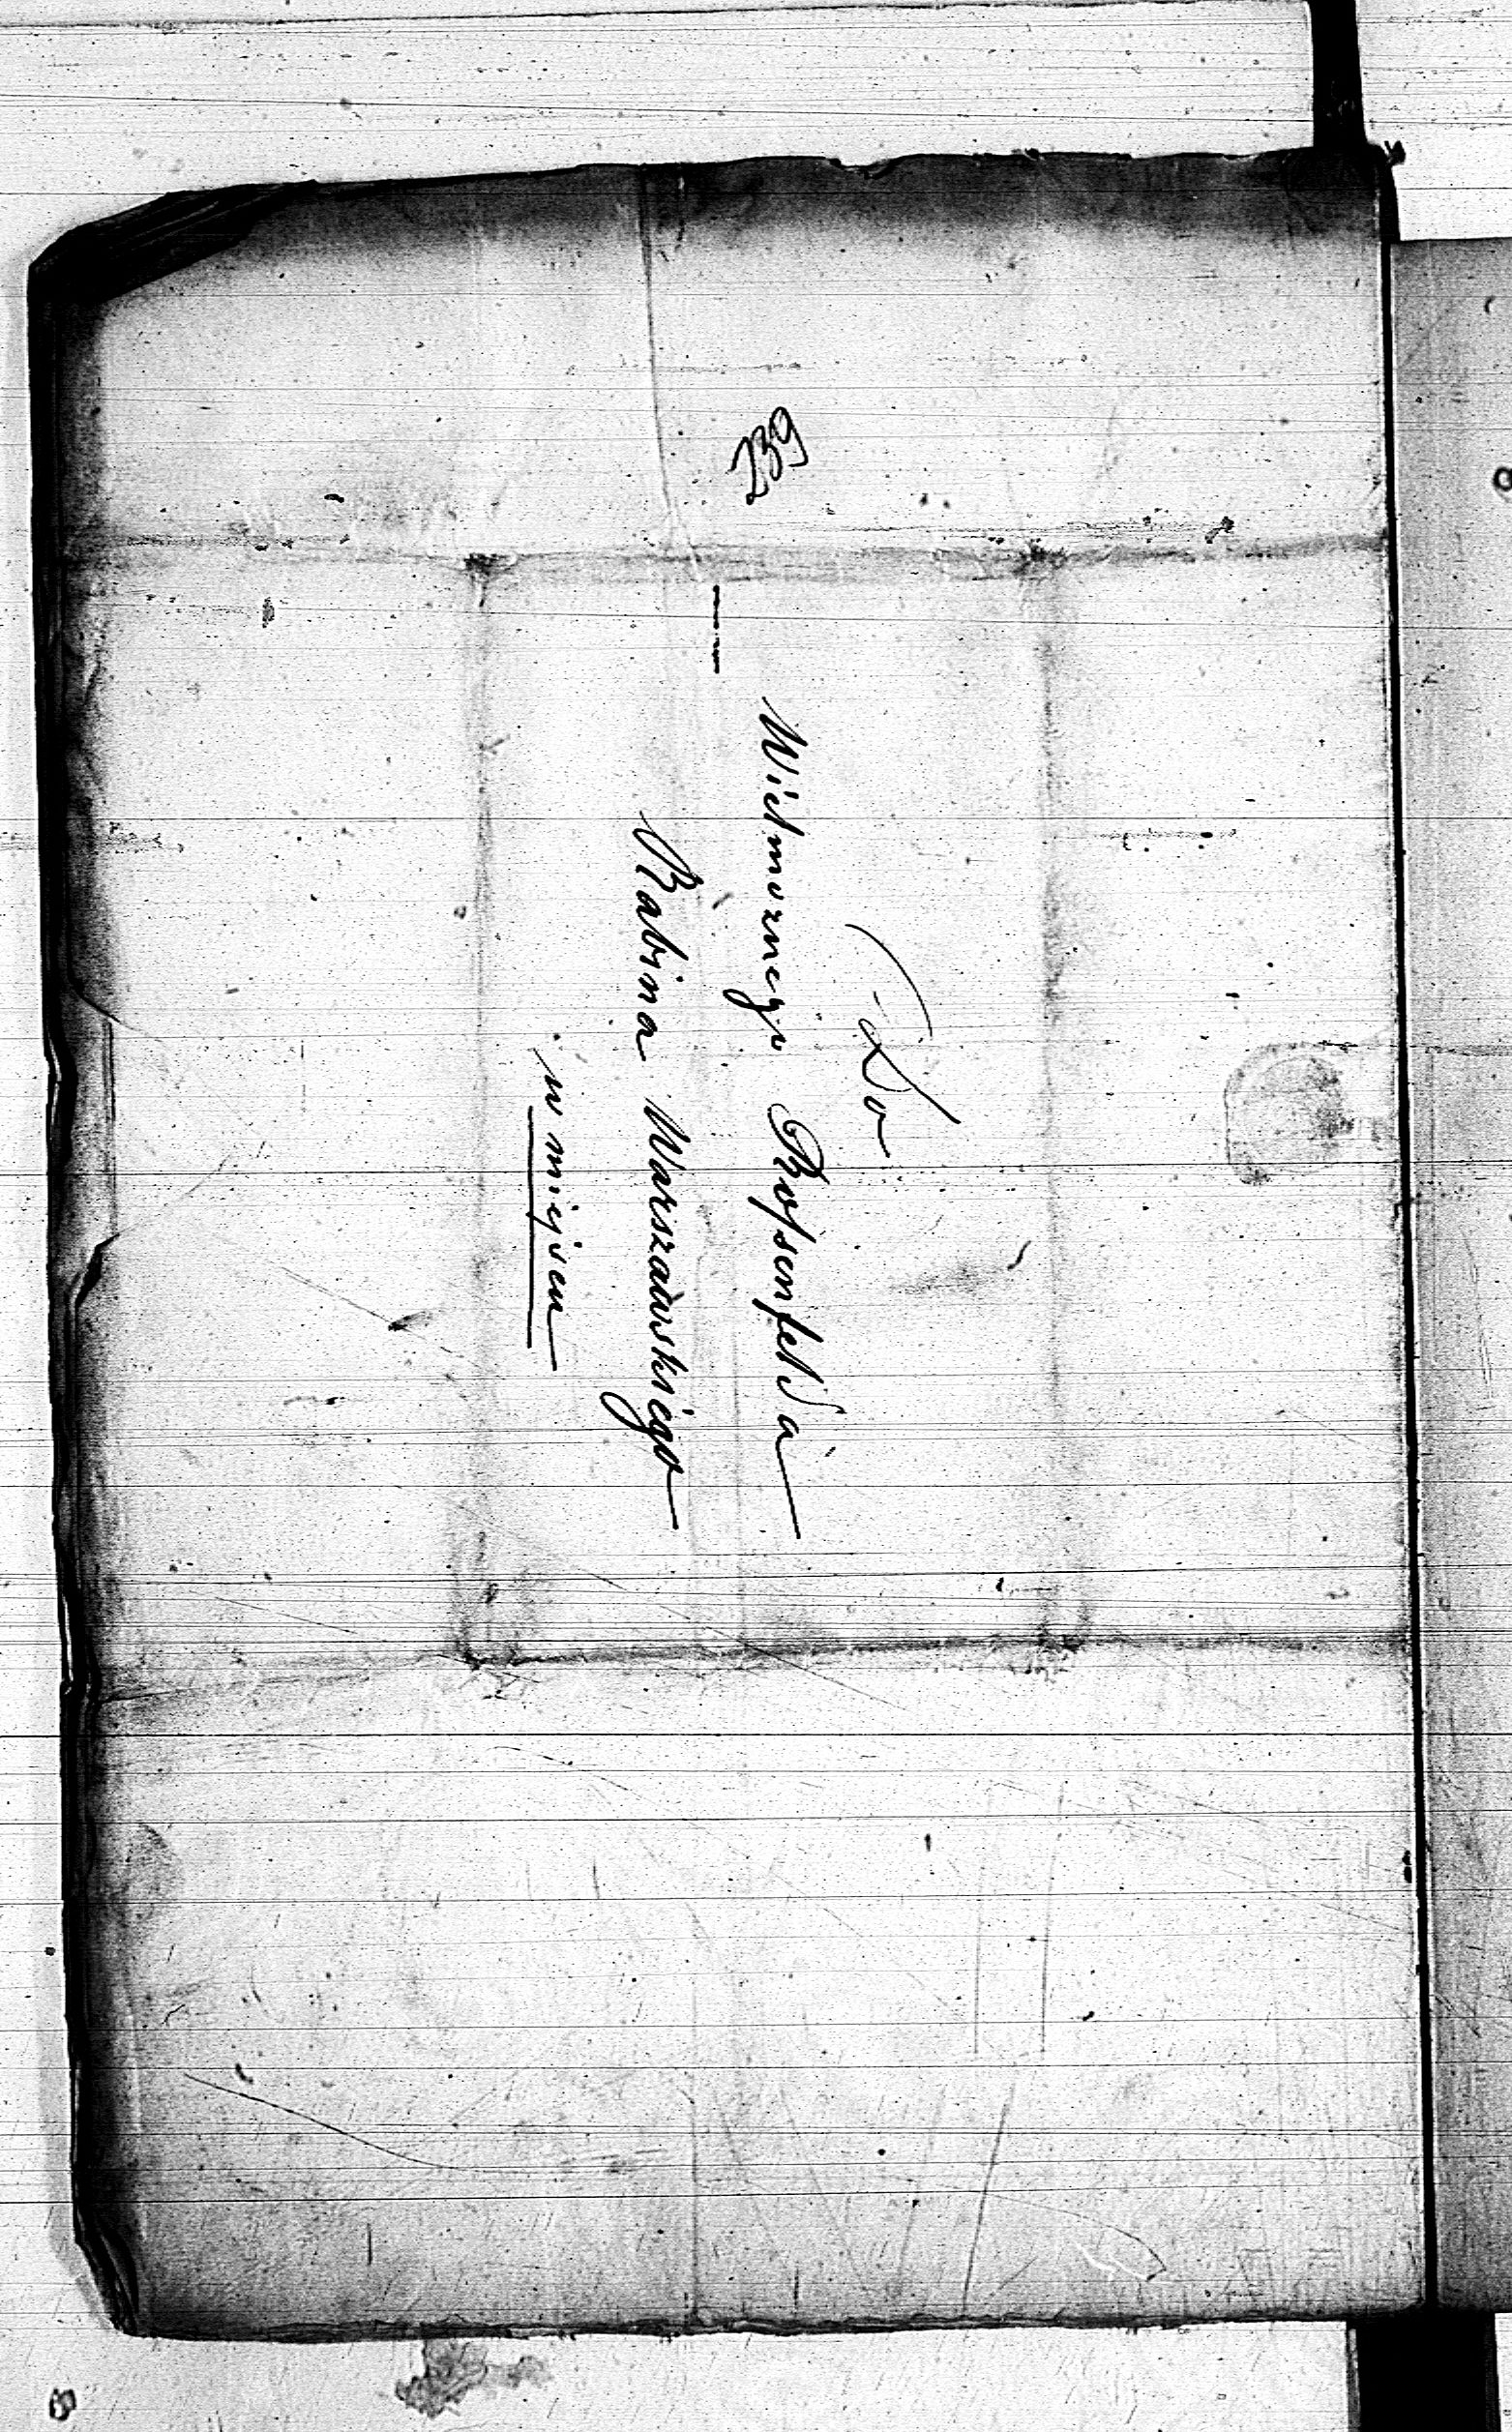 239
Do
Wielmoznego Rossenfelda
Rabina Warszawskiego
w miejscu